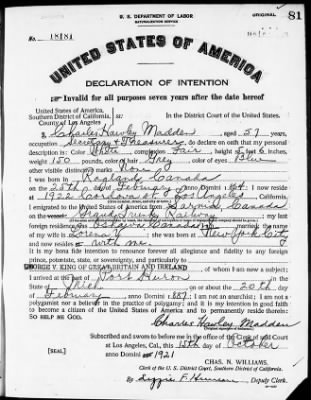 U. S. DEPARTMENT OF LABOR
NATURALIZATION SERVICE
ORIGINAL 81
No. 18181
UNITED STATES OF AMERICA
DECLARATION OF INTENTION
Invalid for all purposes seven years after the date hereof
United States of America,
Southern District of California,
County of Los Angeles
ss:
In the District Court of the United States.
I, Charles Hawley Madden, aged 57 years,
occupation Secretary & Treasurer, do declare on oath that my personal
description is: Color White, complexion Fair, height 5 feet 6 inches,
weight 150 pounds, color of hair Grey, color of eyes Blue
other visible distinctive marks None
I was born in Canada
on the 25th day of February, anno Domini 1864; I now reside
at 1922 Los Angeles, California.
I emigrated to the United States of America from Canada
on the Grand Trunk Railway; my last
foreign residence was Oshawa Canada; I am married; the name
of my wife is; she was born at New York City
and now resides with me.
It is my bona fide intention to renounce forever all allegiance and fidelity to any foreign
prince, potentate, state, or sovereignty, and particularly to
GEORGE V. KING OF GREAT BRITAIN AND IRELAND, of whom I am now a subject;
I arrived at the port of Port Huron, in the
State of Mich, on or about the 20th day
of February, anno Domini; I am not an anarchist; I am not a
polygamist nor a believer in the practice of polygamy; and it is my intention in good faith
to become a citizen of the United States of America and to permanently reside therein:
SO HELP ME GOD.
Charles Hawley Madden
Subscribed and sworn to before me in the office of the Clerk of said Court
at Los Angeles, Cal., this 15th day of October
[SEAL] anno Domini 1921
CHAS. N. WILLIAMS,
Clerk of the U. S. District Court, Southern District of California.
By Deputy Clerk.